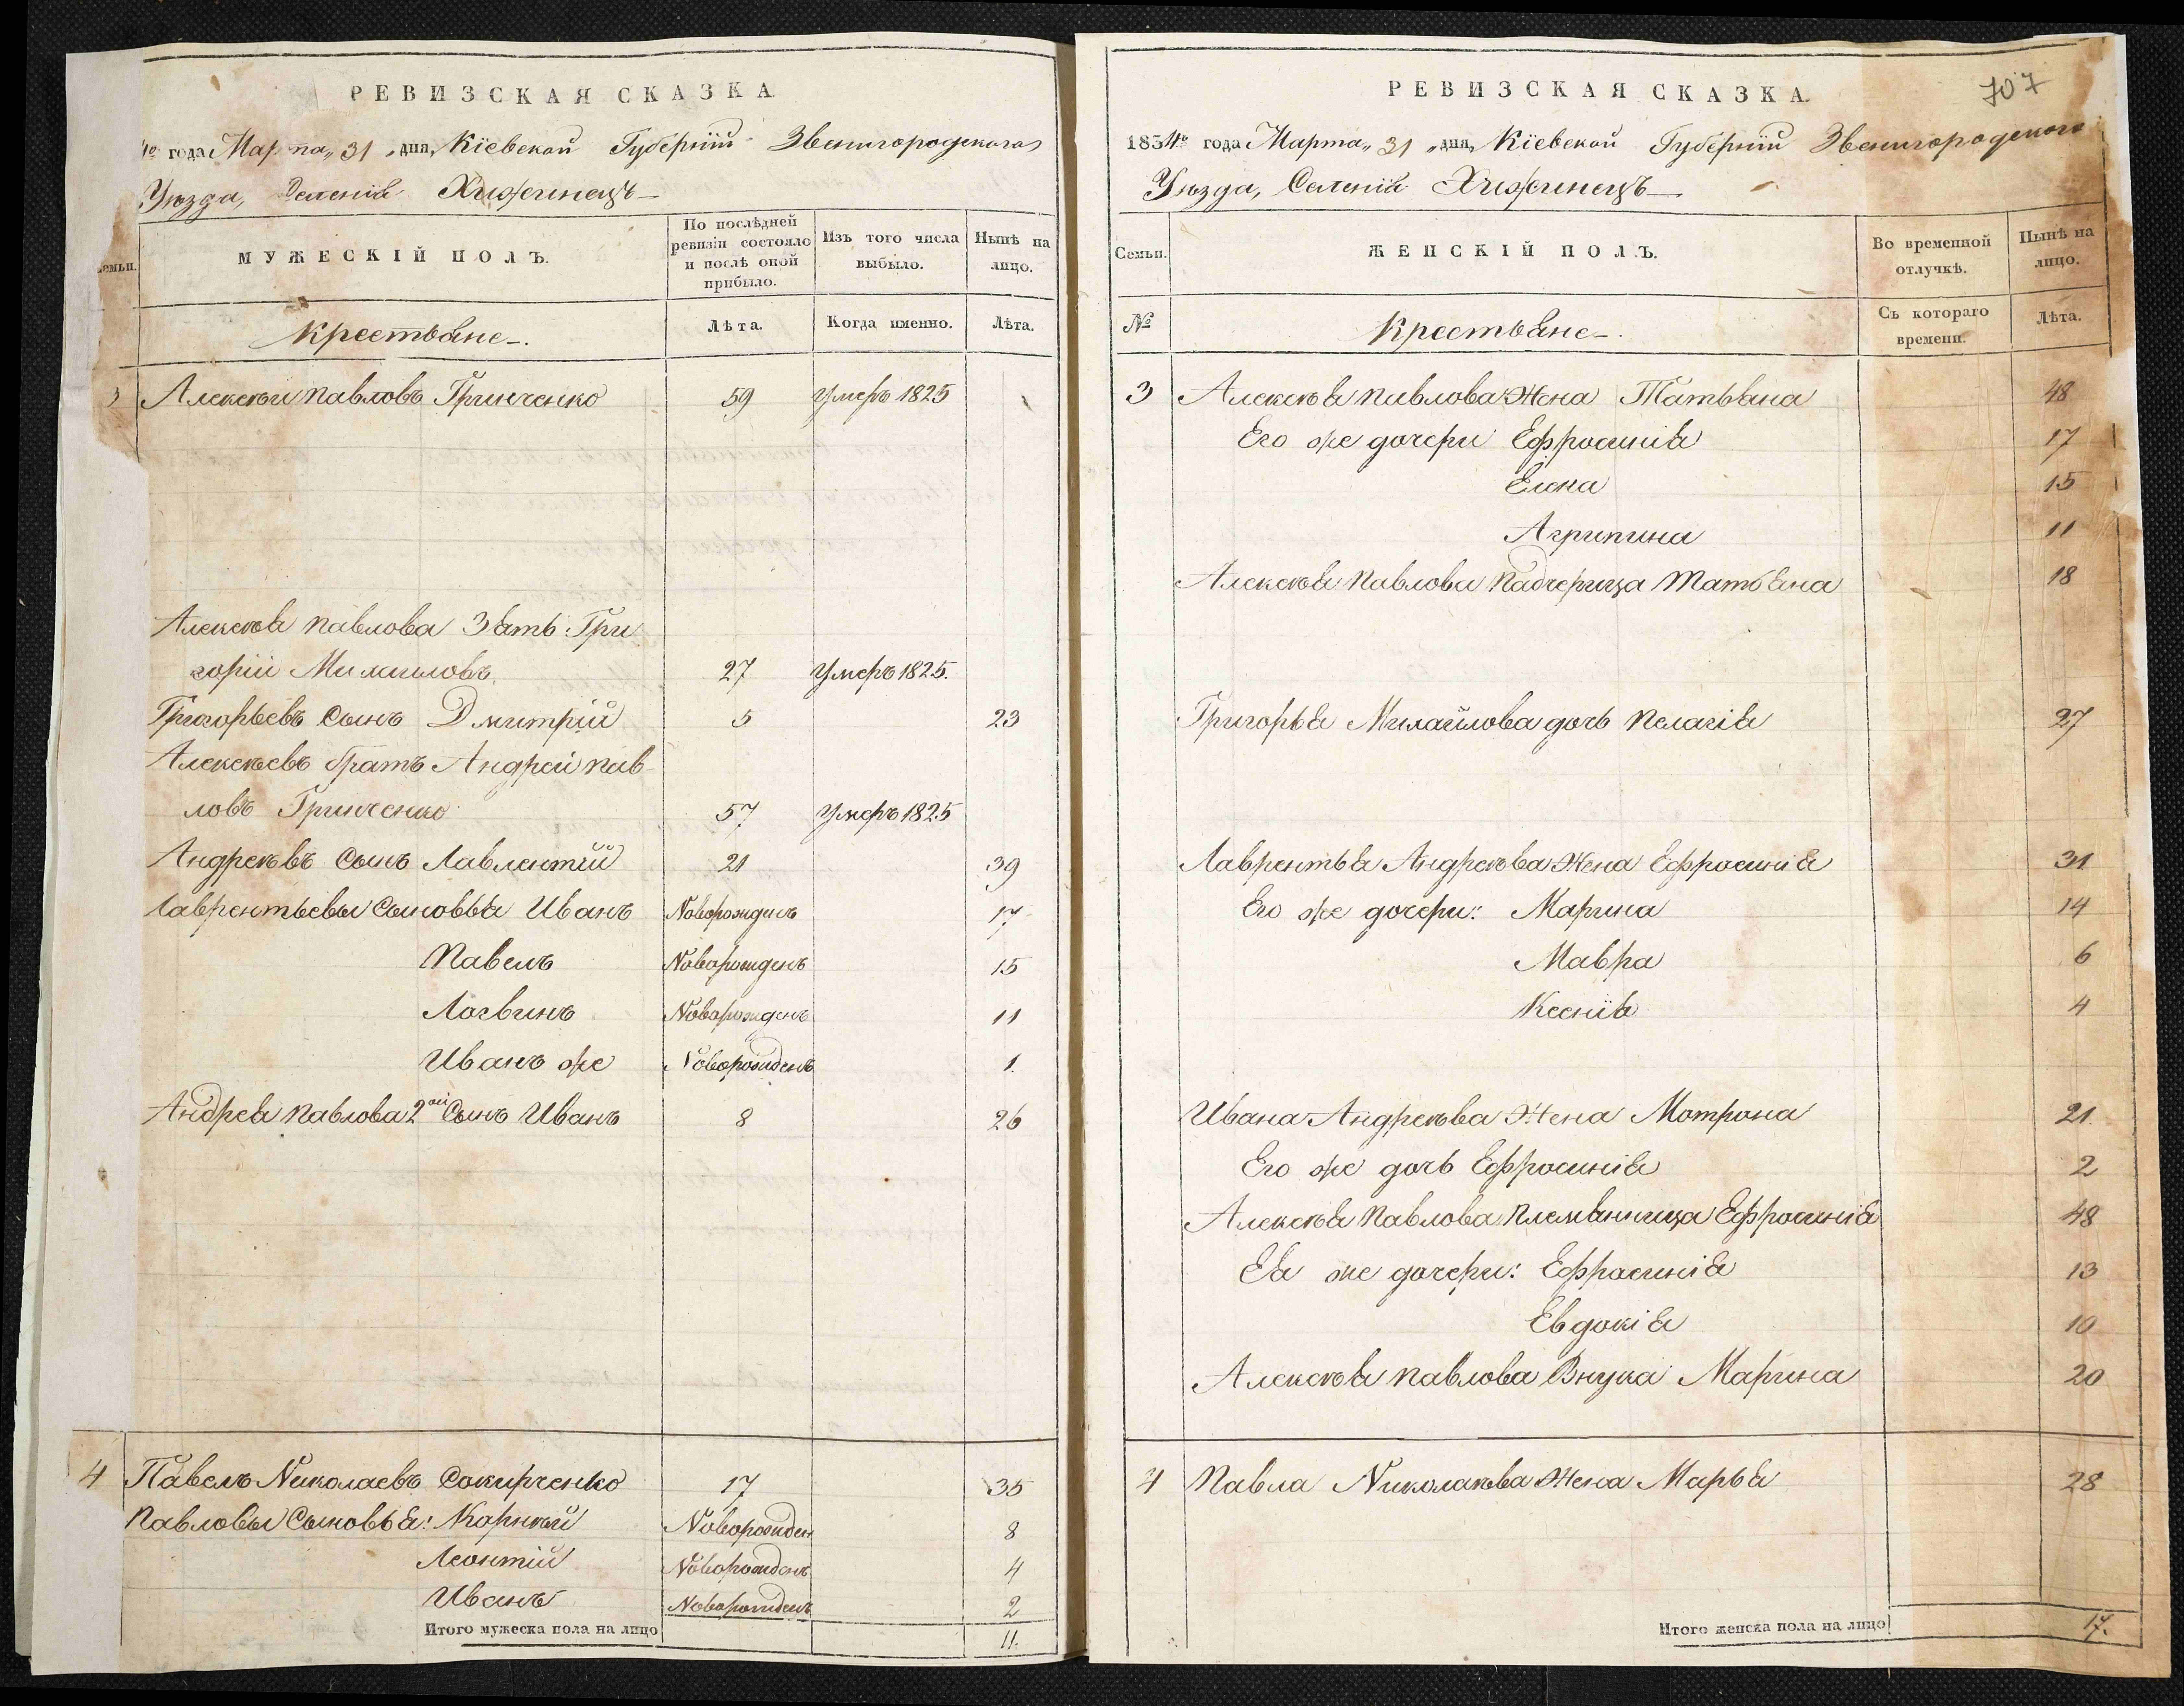 РЕВИЗСКАЯ СКАЗКА
года Марта „31 „дня, Кіевской Губерніи Звенигородскаго
Уѣзда, Селенія Хижинецъ
МУЖЕСКІЙ ПОЛЪ.
По послѣдней ревизіи состояло и послѣ оной прибыло.
Изъ того числа выбыло.
Нынѣ на лицо.
Крестьяне.
Лѣта.
Когда именно.
Лѣта.
3 Алексѣй Павловъ Гринченко 59 Умеръ 1825
Алексѣя Павлова Зять Гри
горій Михайловъ 27 Умеръ 1825.
Григорьевъ Сынъ Дмитрій 5 23
Алексѣевъ братъ Андрей Пав
ловъ Гринченко 57 Умеръ 1825
Андреѣвъ Сынъ Лавлентій 21 39
Лаврентьевы Сыновья Иванъ Новорожденъ 17
Павелъ Новорожденъ 15
Логвинъ Новорожденъ 11
Иванъ же Новорожденъ 1.
Андрея Павлова 2ой Сынъ Иванъ 8 26
4 Павелъ Николаевъ Сокирченко 17 35
Павловы Сыновья: Корнѣй Новорожден 8
Леонтій Новорожденъ 4
Иванъ Новорожденъ 2
Итого мужеска пола на лицо 11.
707
РЕВИЗСКАЯ СКАЗКА.
1834го года Марта „31 „дня, Кіевской Губерніи Звенигородскаго
Уѣзда, Селенія Хижинецъ
Семьи.
ЖЕНСКІЙ ПОЛЪ.
Во временной отлучкѣ.
Нынѣ на лицо.
№
Крестьяне.
Съ котораго времени.
Лѣта.
3 Алексѣя Павлова Жена Татьяна 48
Его же дочери Ефросинія 17
Елена 15
Агрипина 11
Алексѣя Павлова Падчерица Татьяна 18
Григорья Михайлова дочь Пелагія 27
Лаврентья Андреѣва Жена Ефросинія 31
Его же дочери: Марина 14
Мавра 6
Ксенія 4
Ивана Андреѣва Жена Мотрона 21.
Его же дочь Ефросинія 2
Алексѣя Павлова Племянница Ефросинія 48
Ея же дочери: Ефросинія 13
Евдокія 10
Алексѣя Павлова Внука Марина 20
4 Павла Николаѣва Жена Марья 28
Итого женска пола на лицо 17.